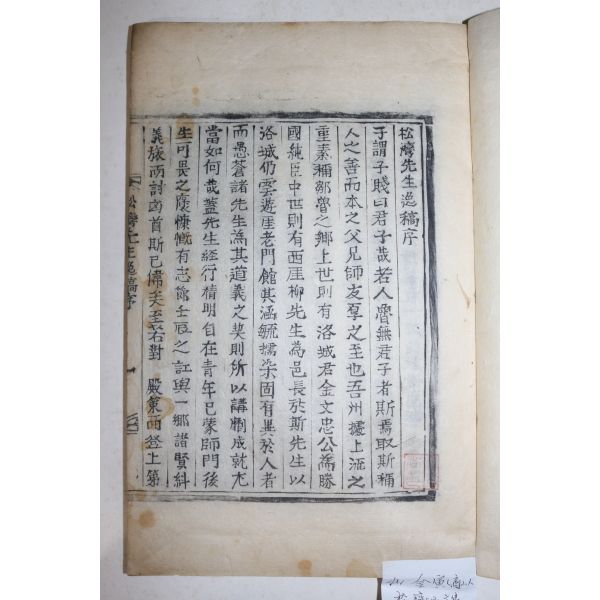 松灣先生逸稿序
子謂子賤曰君子哉若人魯無君子者斯焉取斯稱
人之善而本之父兄師友厚之至也吾州據上游之
重素稱鄒魯之鄉上世則有洛城君金文忠公爲勝
國純臣中世則有西厓柳先生爲邑長於斯先生以
洛城仍雲遊厓老門館其涵毓擩染固有異於人者
而愚蒼諸先生爲其道義之契則所以講劘成就尤
當如何哉蓋先生經行精明自在青年已蒙師門後
生可畏之褒慷慨有志節壬辰之訌與一鄕諸賢糾
義旅而討凶首斯已偉矣至若對 殿策而登上第
松灣先生逸稿序
一